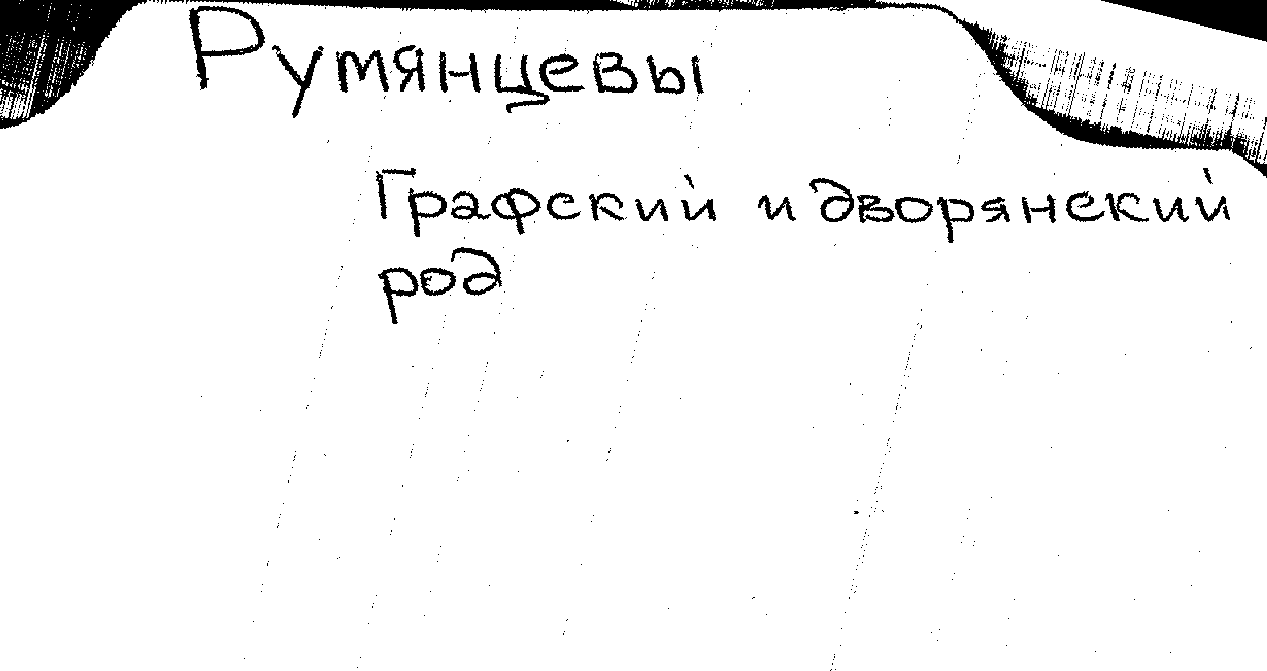 Румянцевы
Графский и дворянский
род